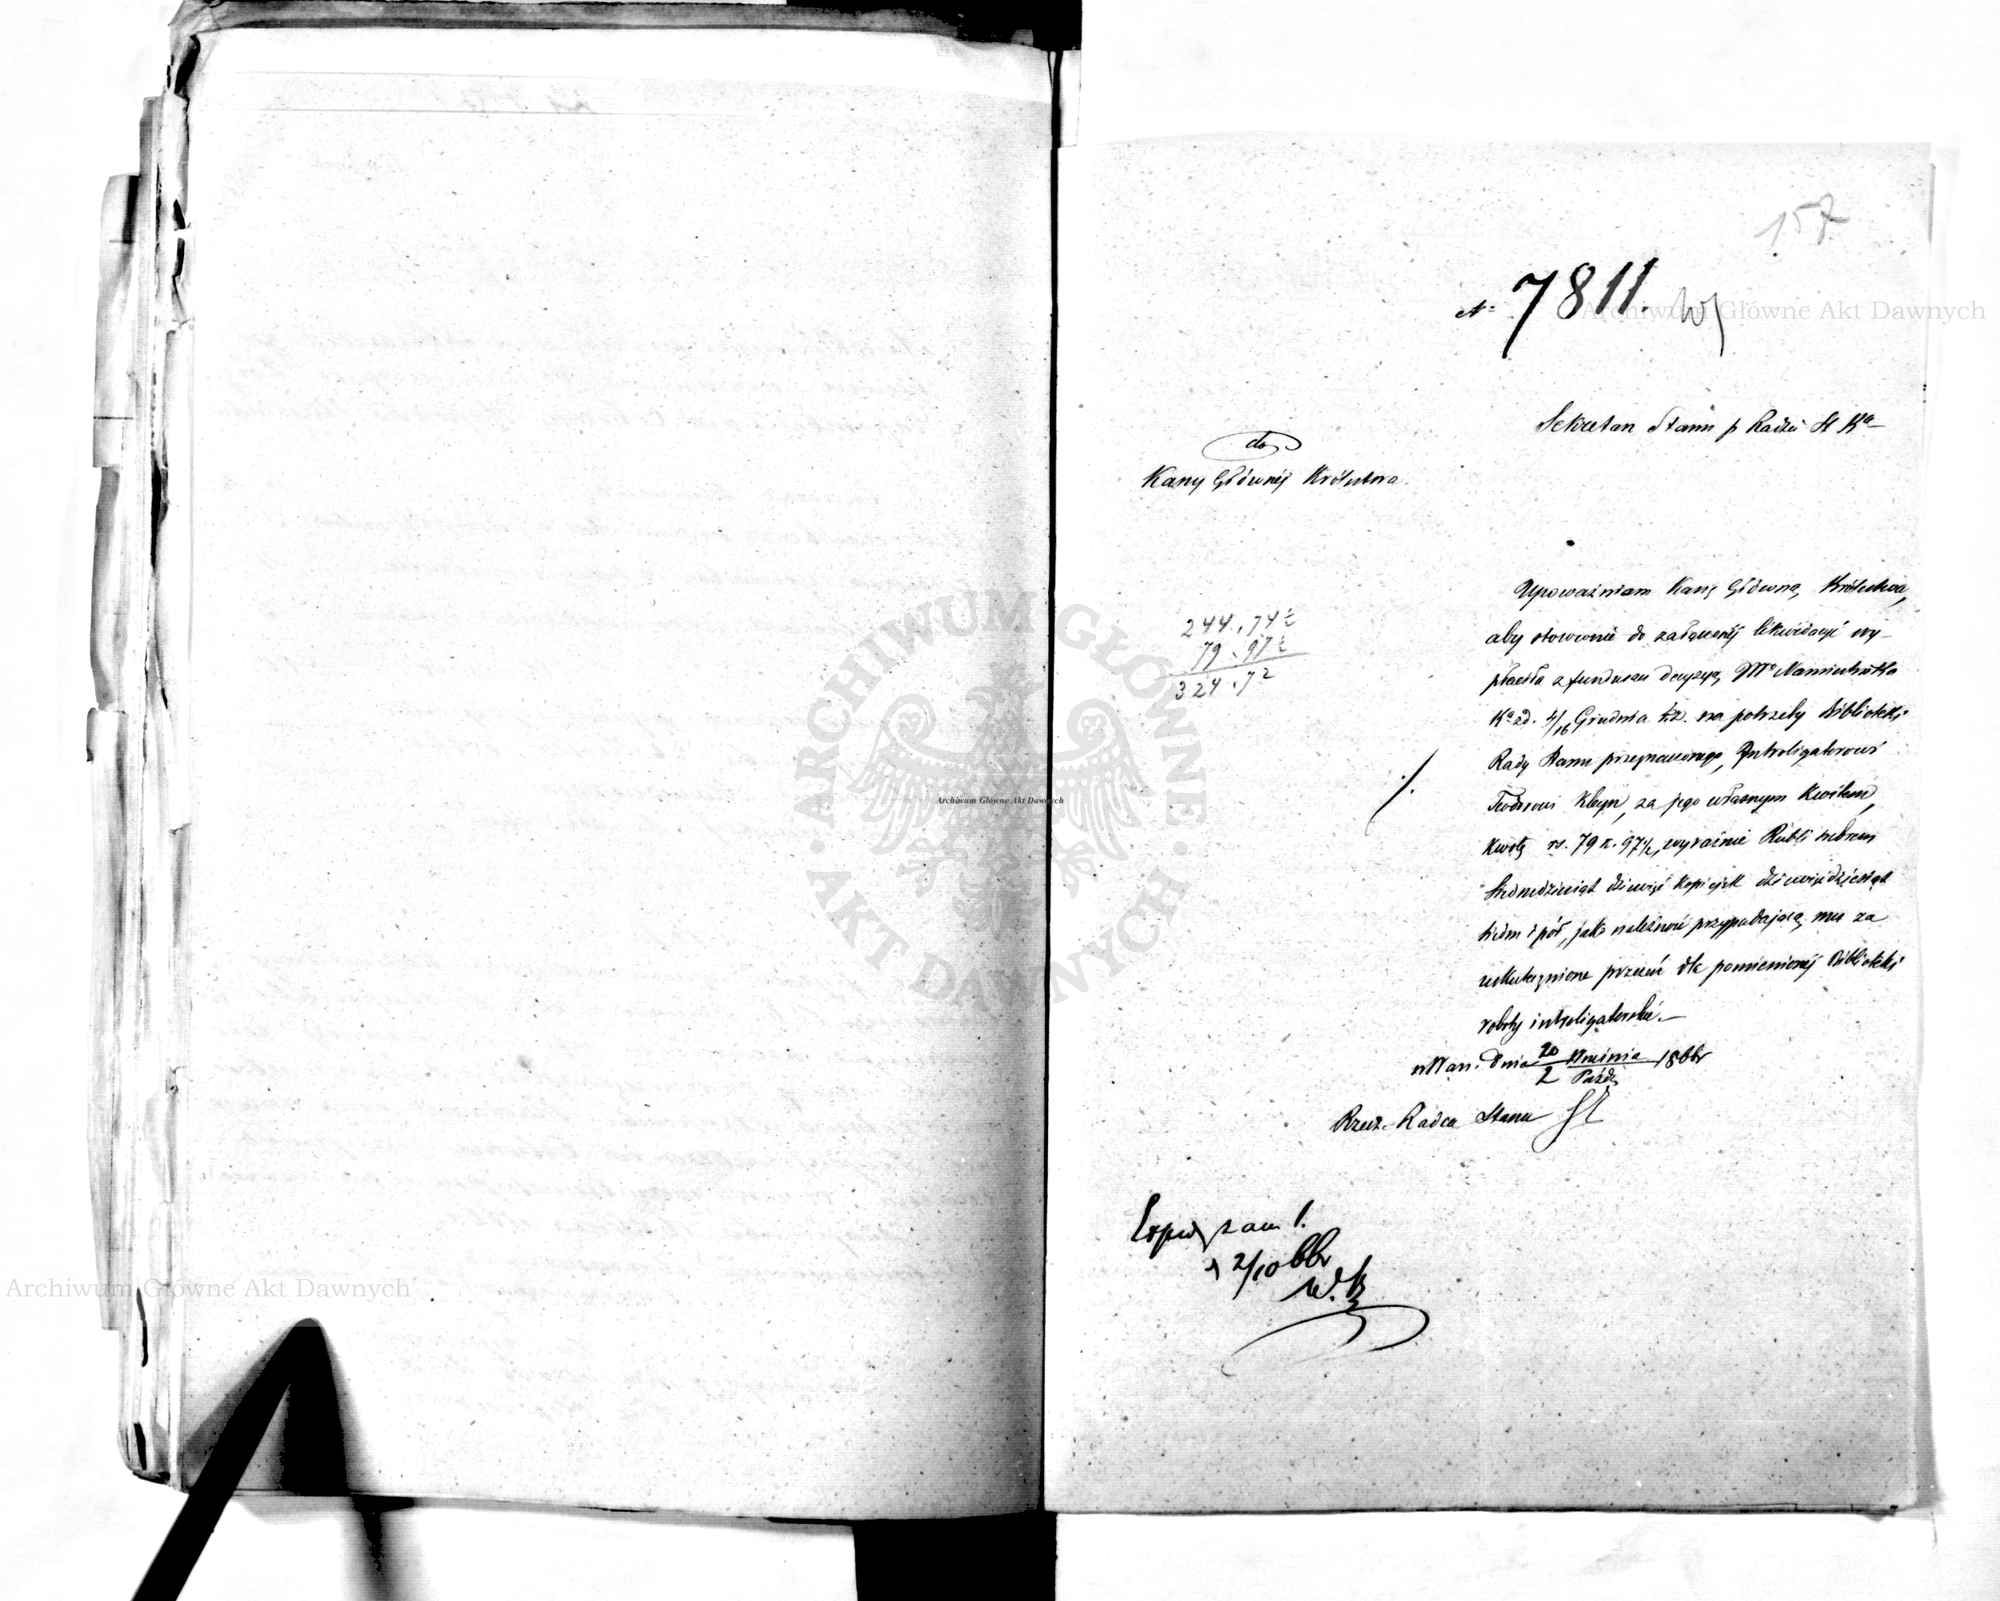 157
No 7811.
Sekretarz Stanu p Radzie St Kr
do
Kassy Głównéj Królestwa
244.74½
79.97½
324.72
Upoważniam Kassę Główną Królestwa,
aby stosownie do załączonéj likwidacyi wy-
płaciła z funduszu decyzyą JMo Namiestnika
Kr. zd. 4/16 Grudnia r.z. na potrzeby Biblioteki
Rady Stanu przeznaczonego, Introligatorowi
Teodorowi za jego własnym Kwitem,
kwotę rs. 79 k. 97½, wyraźnie Rubli srebrem
siedmdziesiąt dziewięć kopiejek dziewięćdziesiąt
siedm i pół, jako należność przypadającą mu za
uskutecznione przezeń dla pomienionéj Biblioteki
roboty introligatorskie.—
w War. Dnia 20 Września / 2 Paźdz 1866r
Rzecz. Radca Stanu
d 2/10 66r
W. K
Archiwum Główne Akt Dawnych
Archiwum Główne Akt Dawnych
Archiwum Główne Akt Dawnych
ARCHIWUM GŁÓWNE
AKT DAWNYCH